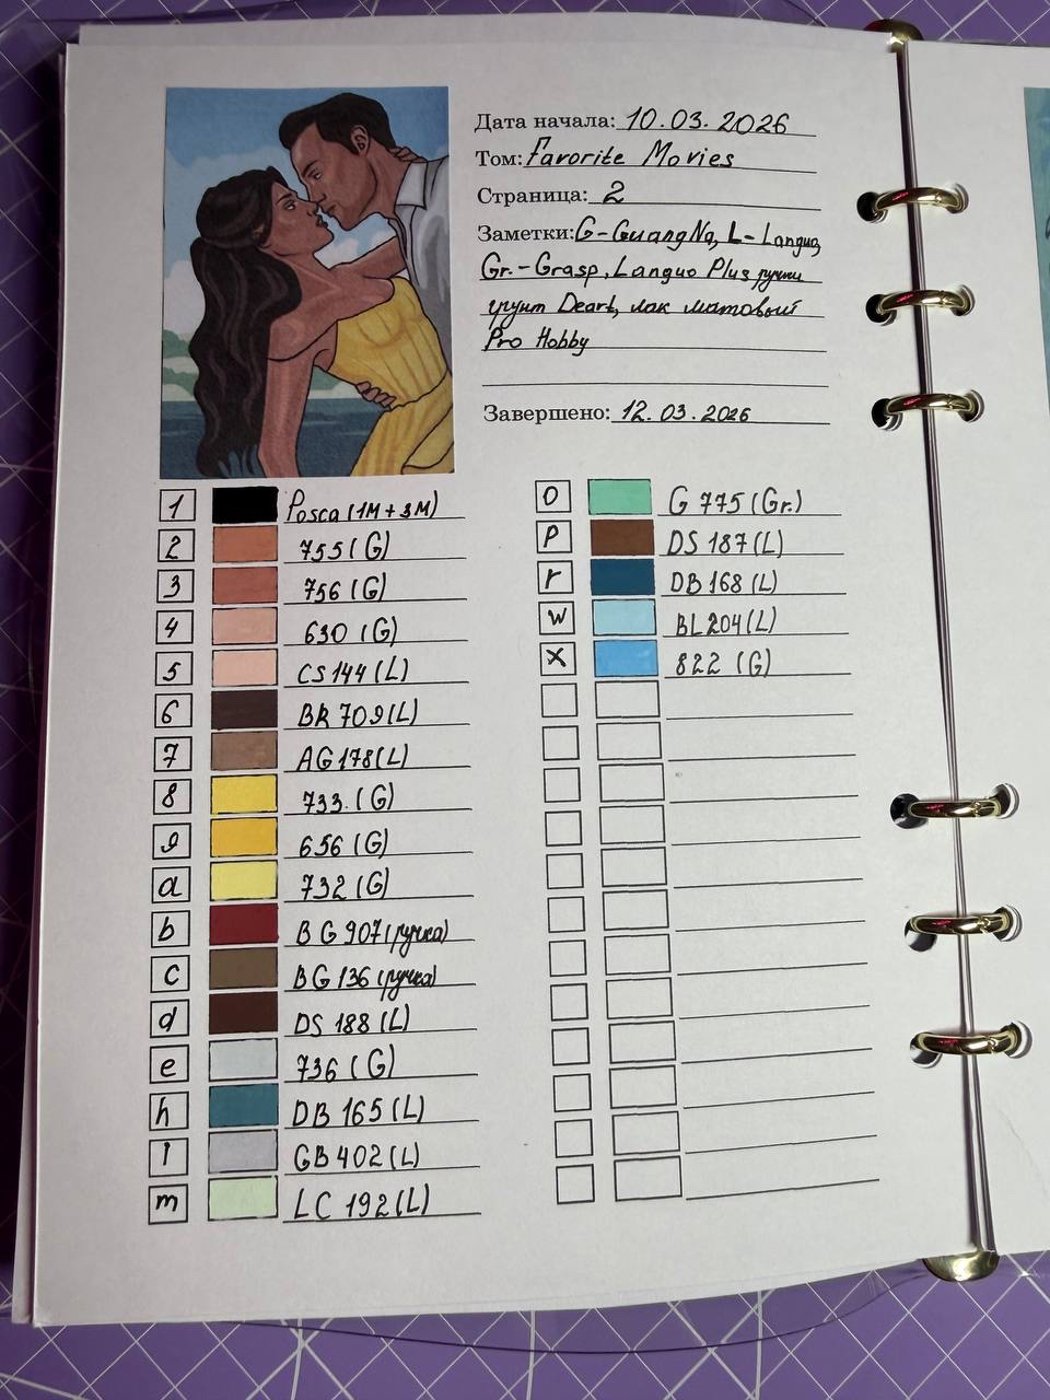 Дата начала: 10.03.2026
Том: Favorite Movies
Страница: 2
Заметки: G-GuangNa, L-Languo,
Gr.-Grasp, Languo Plus ручки
грунт Deart, лак матовый
Pro Hobby
Завершено: 12.03.2026
1 Posca (1M+3M)
2 755 (G)
3 756 (G)
4 630 (G)
5 CS 144 (L)
6 BR 709 (L)
7 AG 178 (L)
8 733. (G)
9 656 (G)
a 732 (G)
b BG 907 (ручка)
c BG 136 (ручка)
d DS 188 (L)
e 736 (G)
h DB 165 (L)
l GB 402 (L)
m LC 192 (L)
O G 775 (Gr.)
P DS 187 (L)
r DB 168 (L)
W BL 204 (L)
X 822 (G)